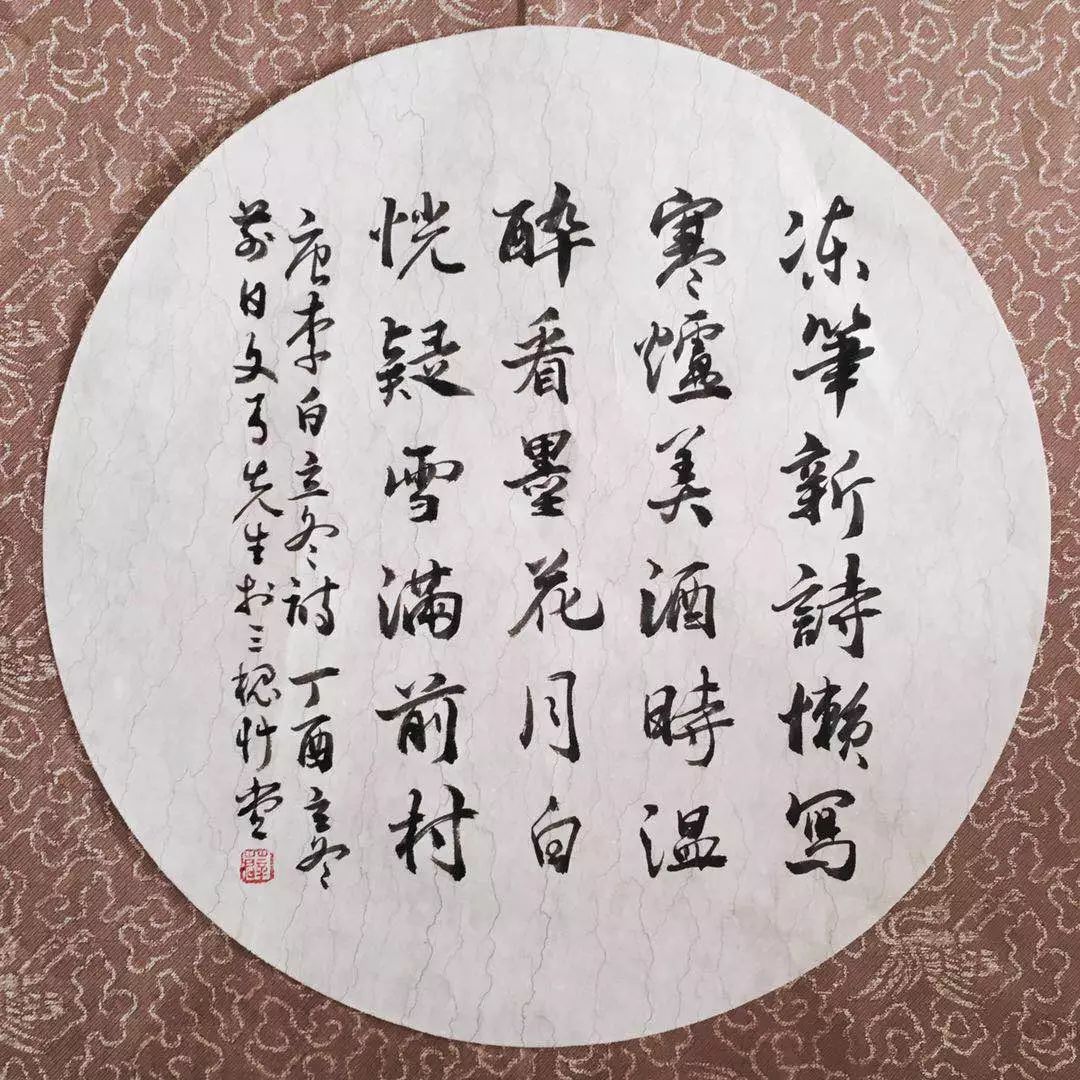 凍筆新詩懶寫
寒爐美酒時温
醉看墨花月白
恍疑雪滿前村
唐李白立冬詩丁酉立冬
前日文弓先生於三槐竹堂